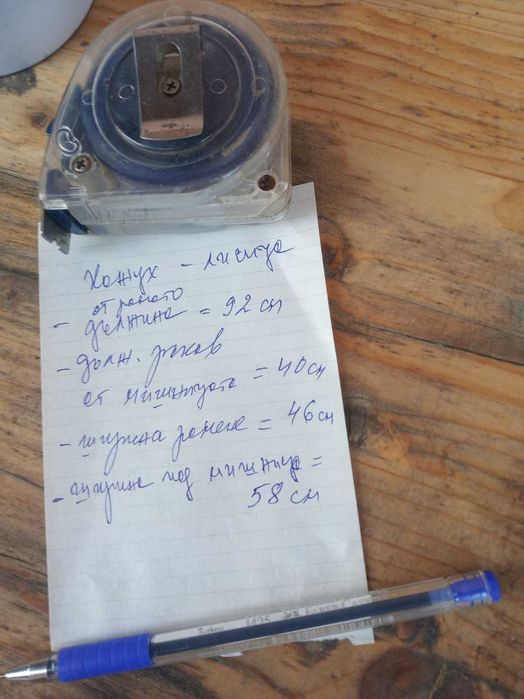 Кожух - лисица
от рамото
- дължина = 92 см
- дълж. ръкав
от мишницата = 40 см
- ширина рамене = 46 см
- ширина под мишница =
58 см